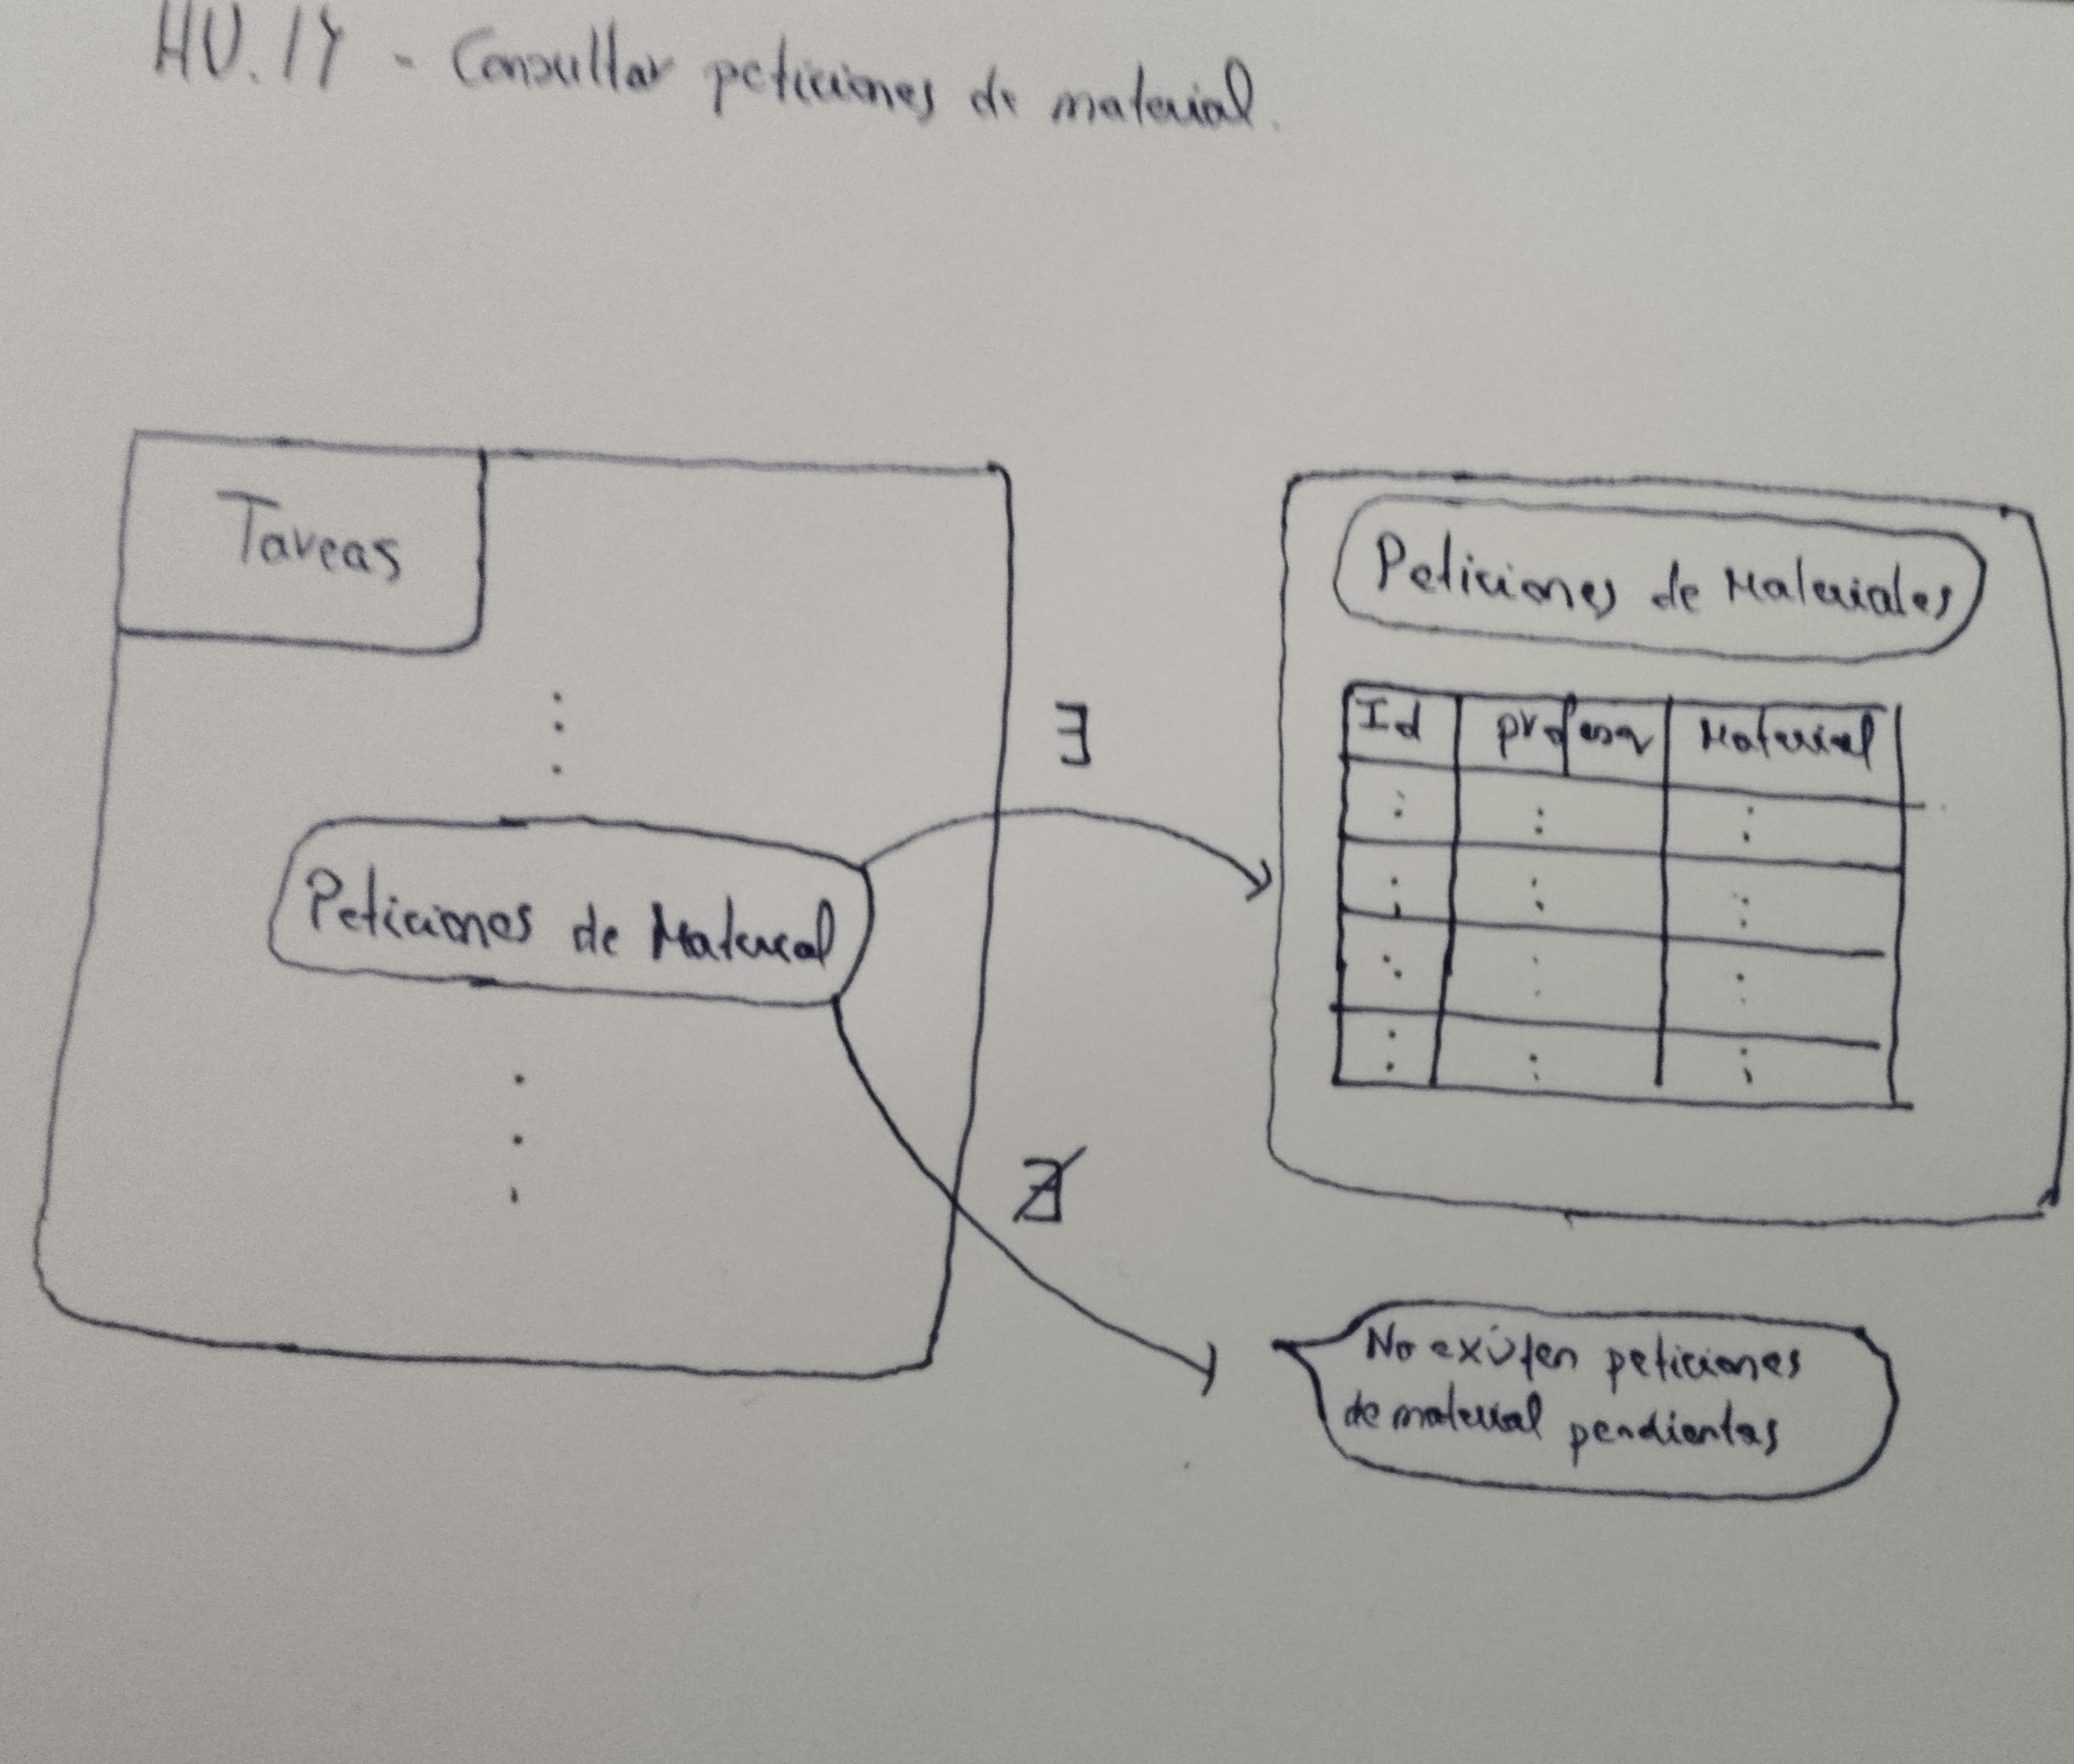 HU.14 - Consultar peticiones de material.
Tareas
Peticiones de Material
∃
∄
Peticiones de Materiales
Id profesor Material
No existen peticiones
de material pendientes